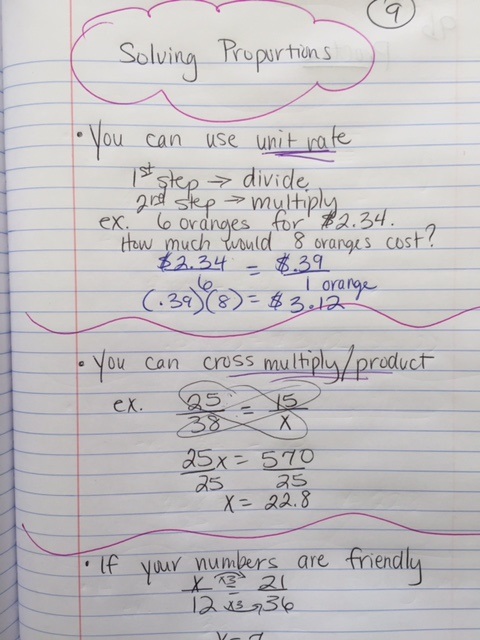 9
Solving Proportions
• You can use unit rate
1st step → divide
2nd step → multiply
ex. 6 oranges for $2.34.
How much would 8 oranges cost?
$2.34 = $.39
6 1 orange
(.39)(8) = $3.12
• You can cross multiply/product
ex. 25 = 15
38 x
25x = 570
25 25
x = 22.8
• If your numbers are friendly
x x3 = 21
12 x3 36